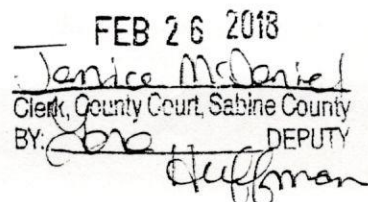 FEB 26 2018
Janice McDaniel
Clerk, County Court, Sabine County
BY: DEPUTY
Huffman